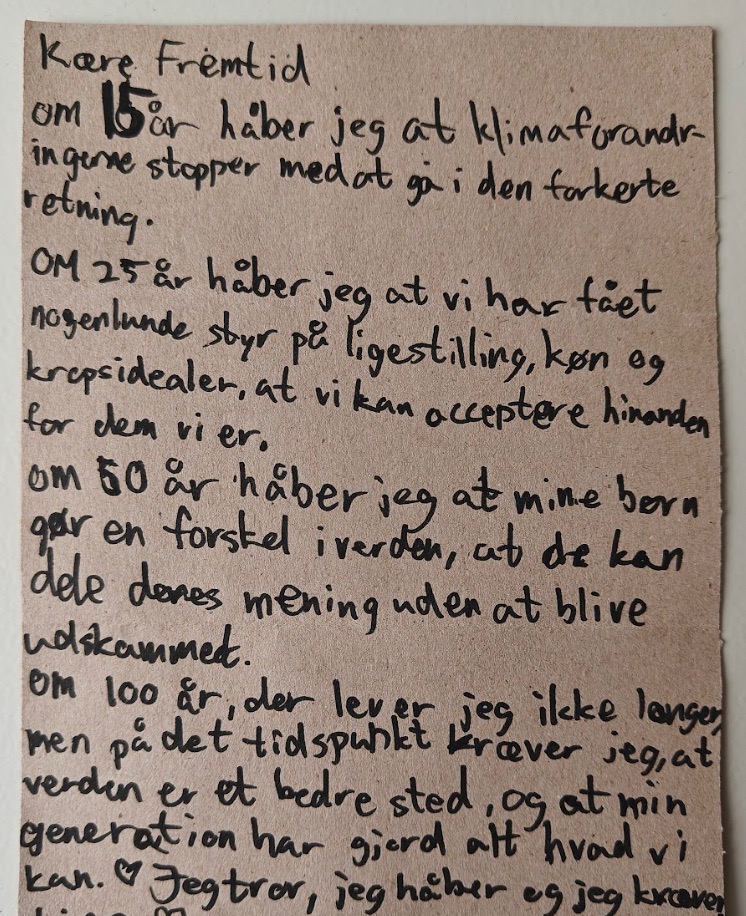 Kære Fremtid
om 15 år håber jeg at klimaforandr-
ingerne stopper med at gå i den forkerte
retning.
OM 25 år håber jeg at vi har fået
nogenlunde styr på ligestilling, køn og
kropsidealer, at vi kan acceptere hinanden
for dem vi er.
om 50 år håber jeg at mine børn
gør en forskel i verden, at de kan
dele deres mening uden at blive
udskammet.
om 100 år, der lever jeg ikke længer,
men på det tidspunkt kræver jeg, at
verden er et bedre sted, og at min
generation har gjord alt hvad vi
kan. ♡ Jeg tror, jeg håber og jeg kræver